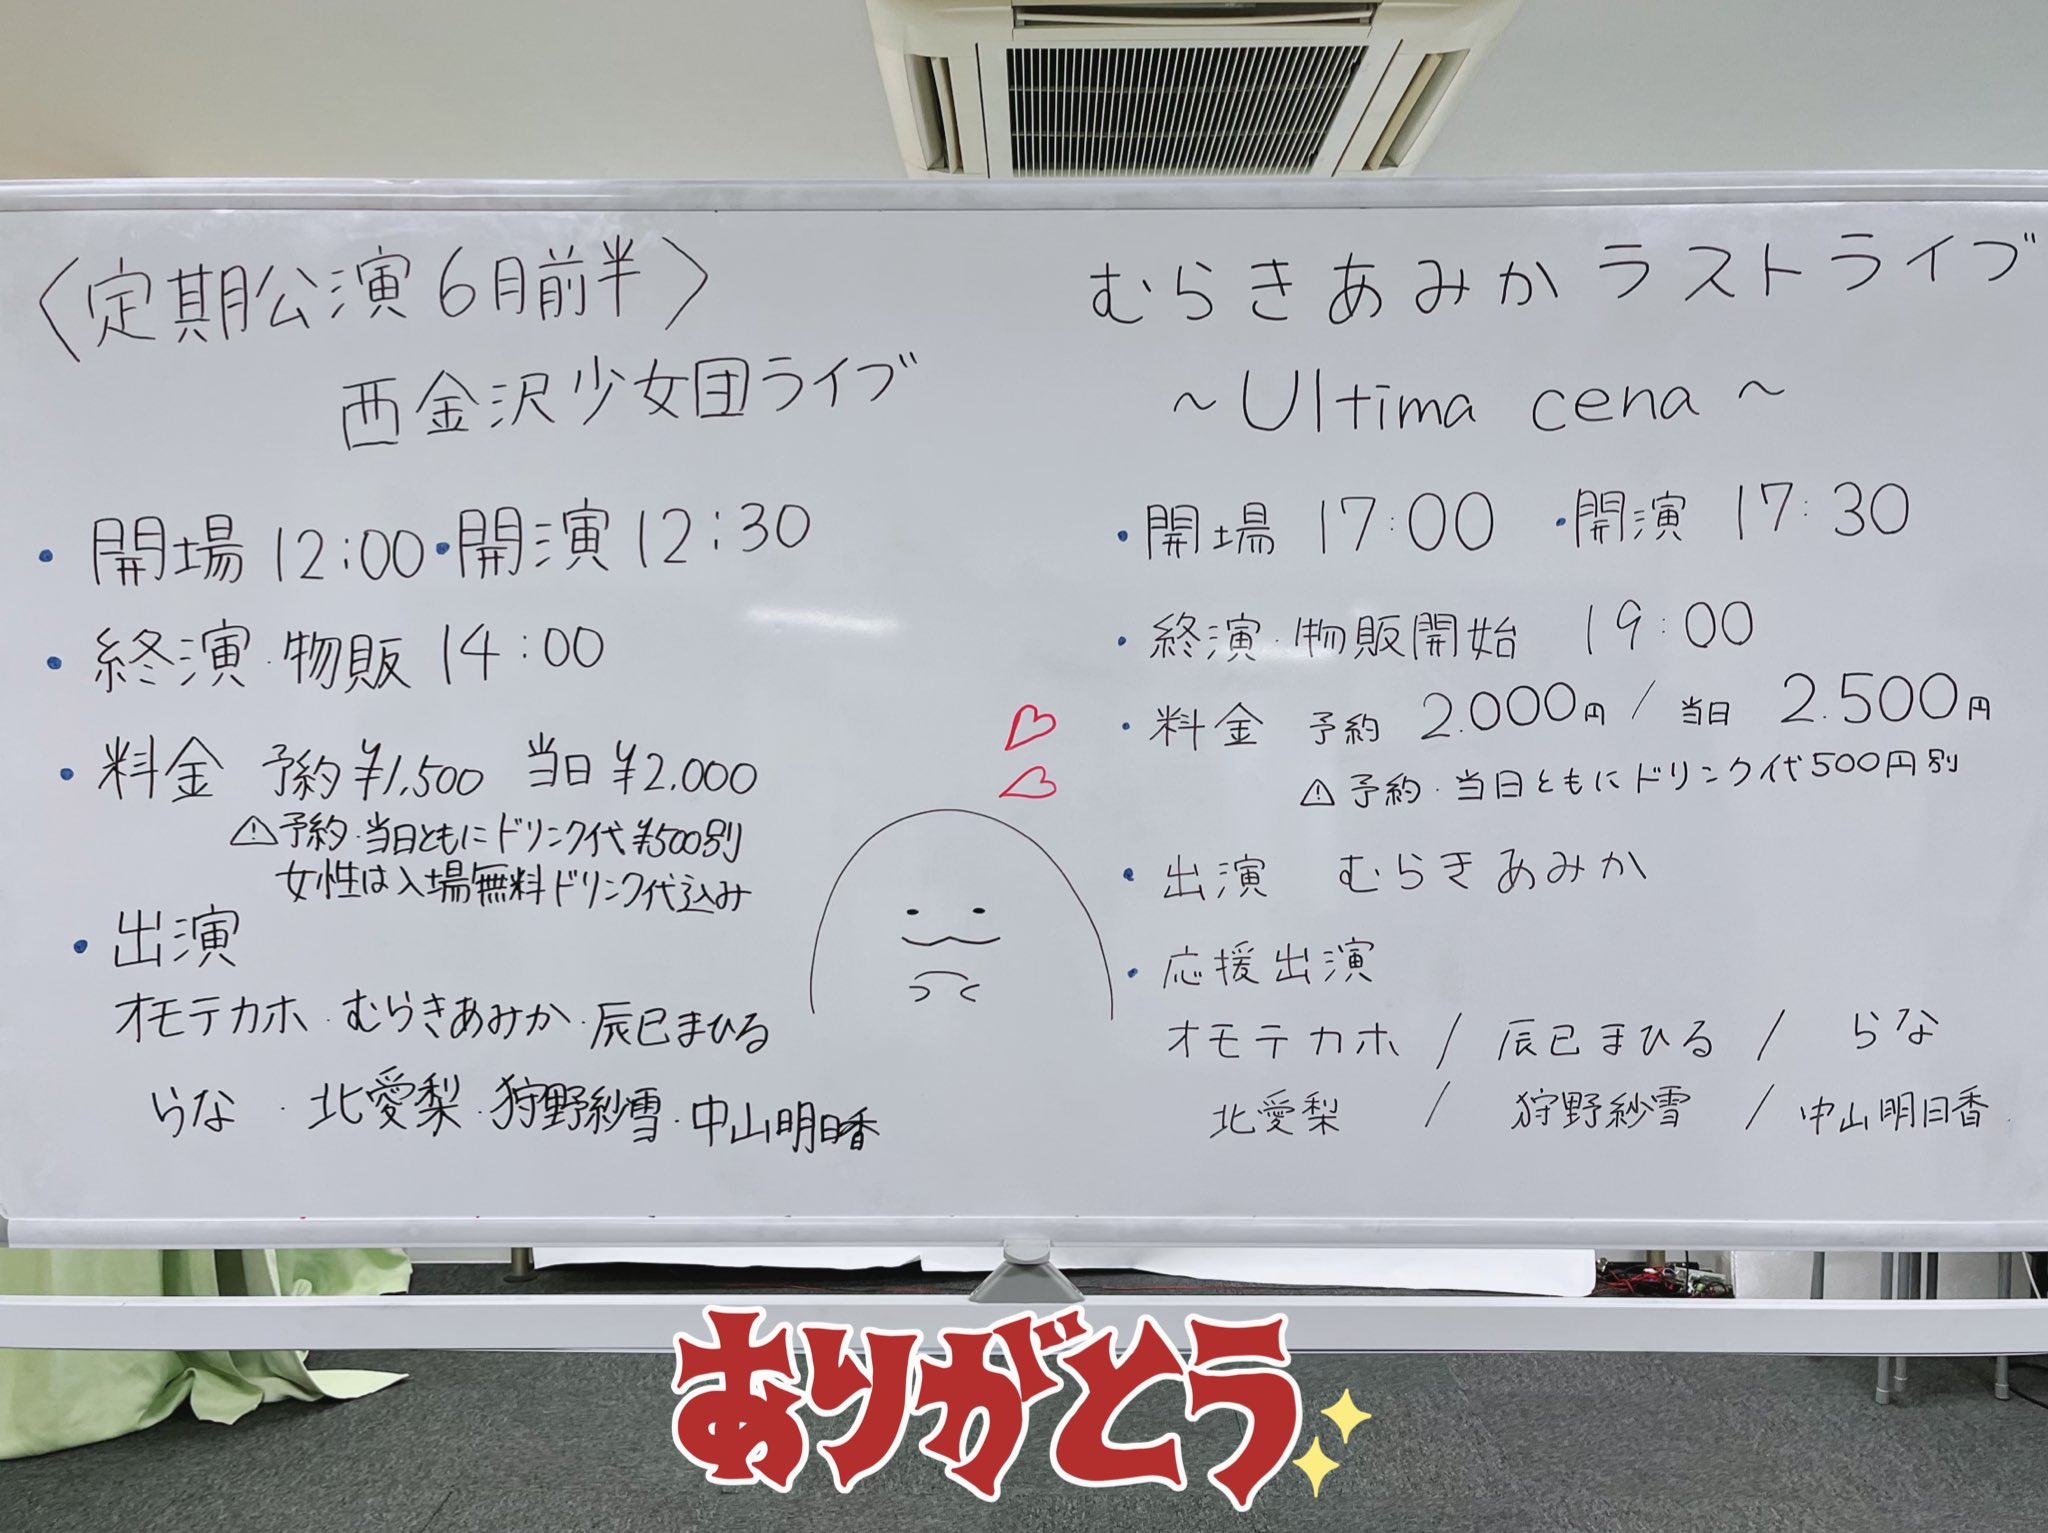 〈定期公演6月前半〉
西金沢少女団ライブ
・開場 12:00・開演 12:30
・終演・物販 14:00
・料金 予約¥1,500 当日¥2.000
⚠予約・当日ともにドリンク代¥500別
女性は入場無料ドリンク代込み
・出演
オモテカホ・むらきあみか・辰巳まひる
らな・北愛梨・狩野紗雪・中山明日香
むらきあみかラストライブ
~Ultima cena~
・開場 17:00 ・開演 17:30
・終演・物販開始 19:00
・料金 予約 2.000円 / 当日 2.500円
⚠予約・当日ともにドリンク代500円別
・出演 むらきあみか
・応援出演
オモテカホ / 辰巳まひる / らな
北愛梨 / 狩野紗雪 / 中山明日香
ありがとう